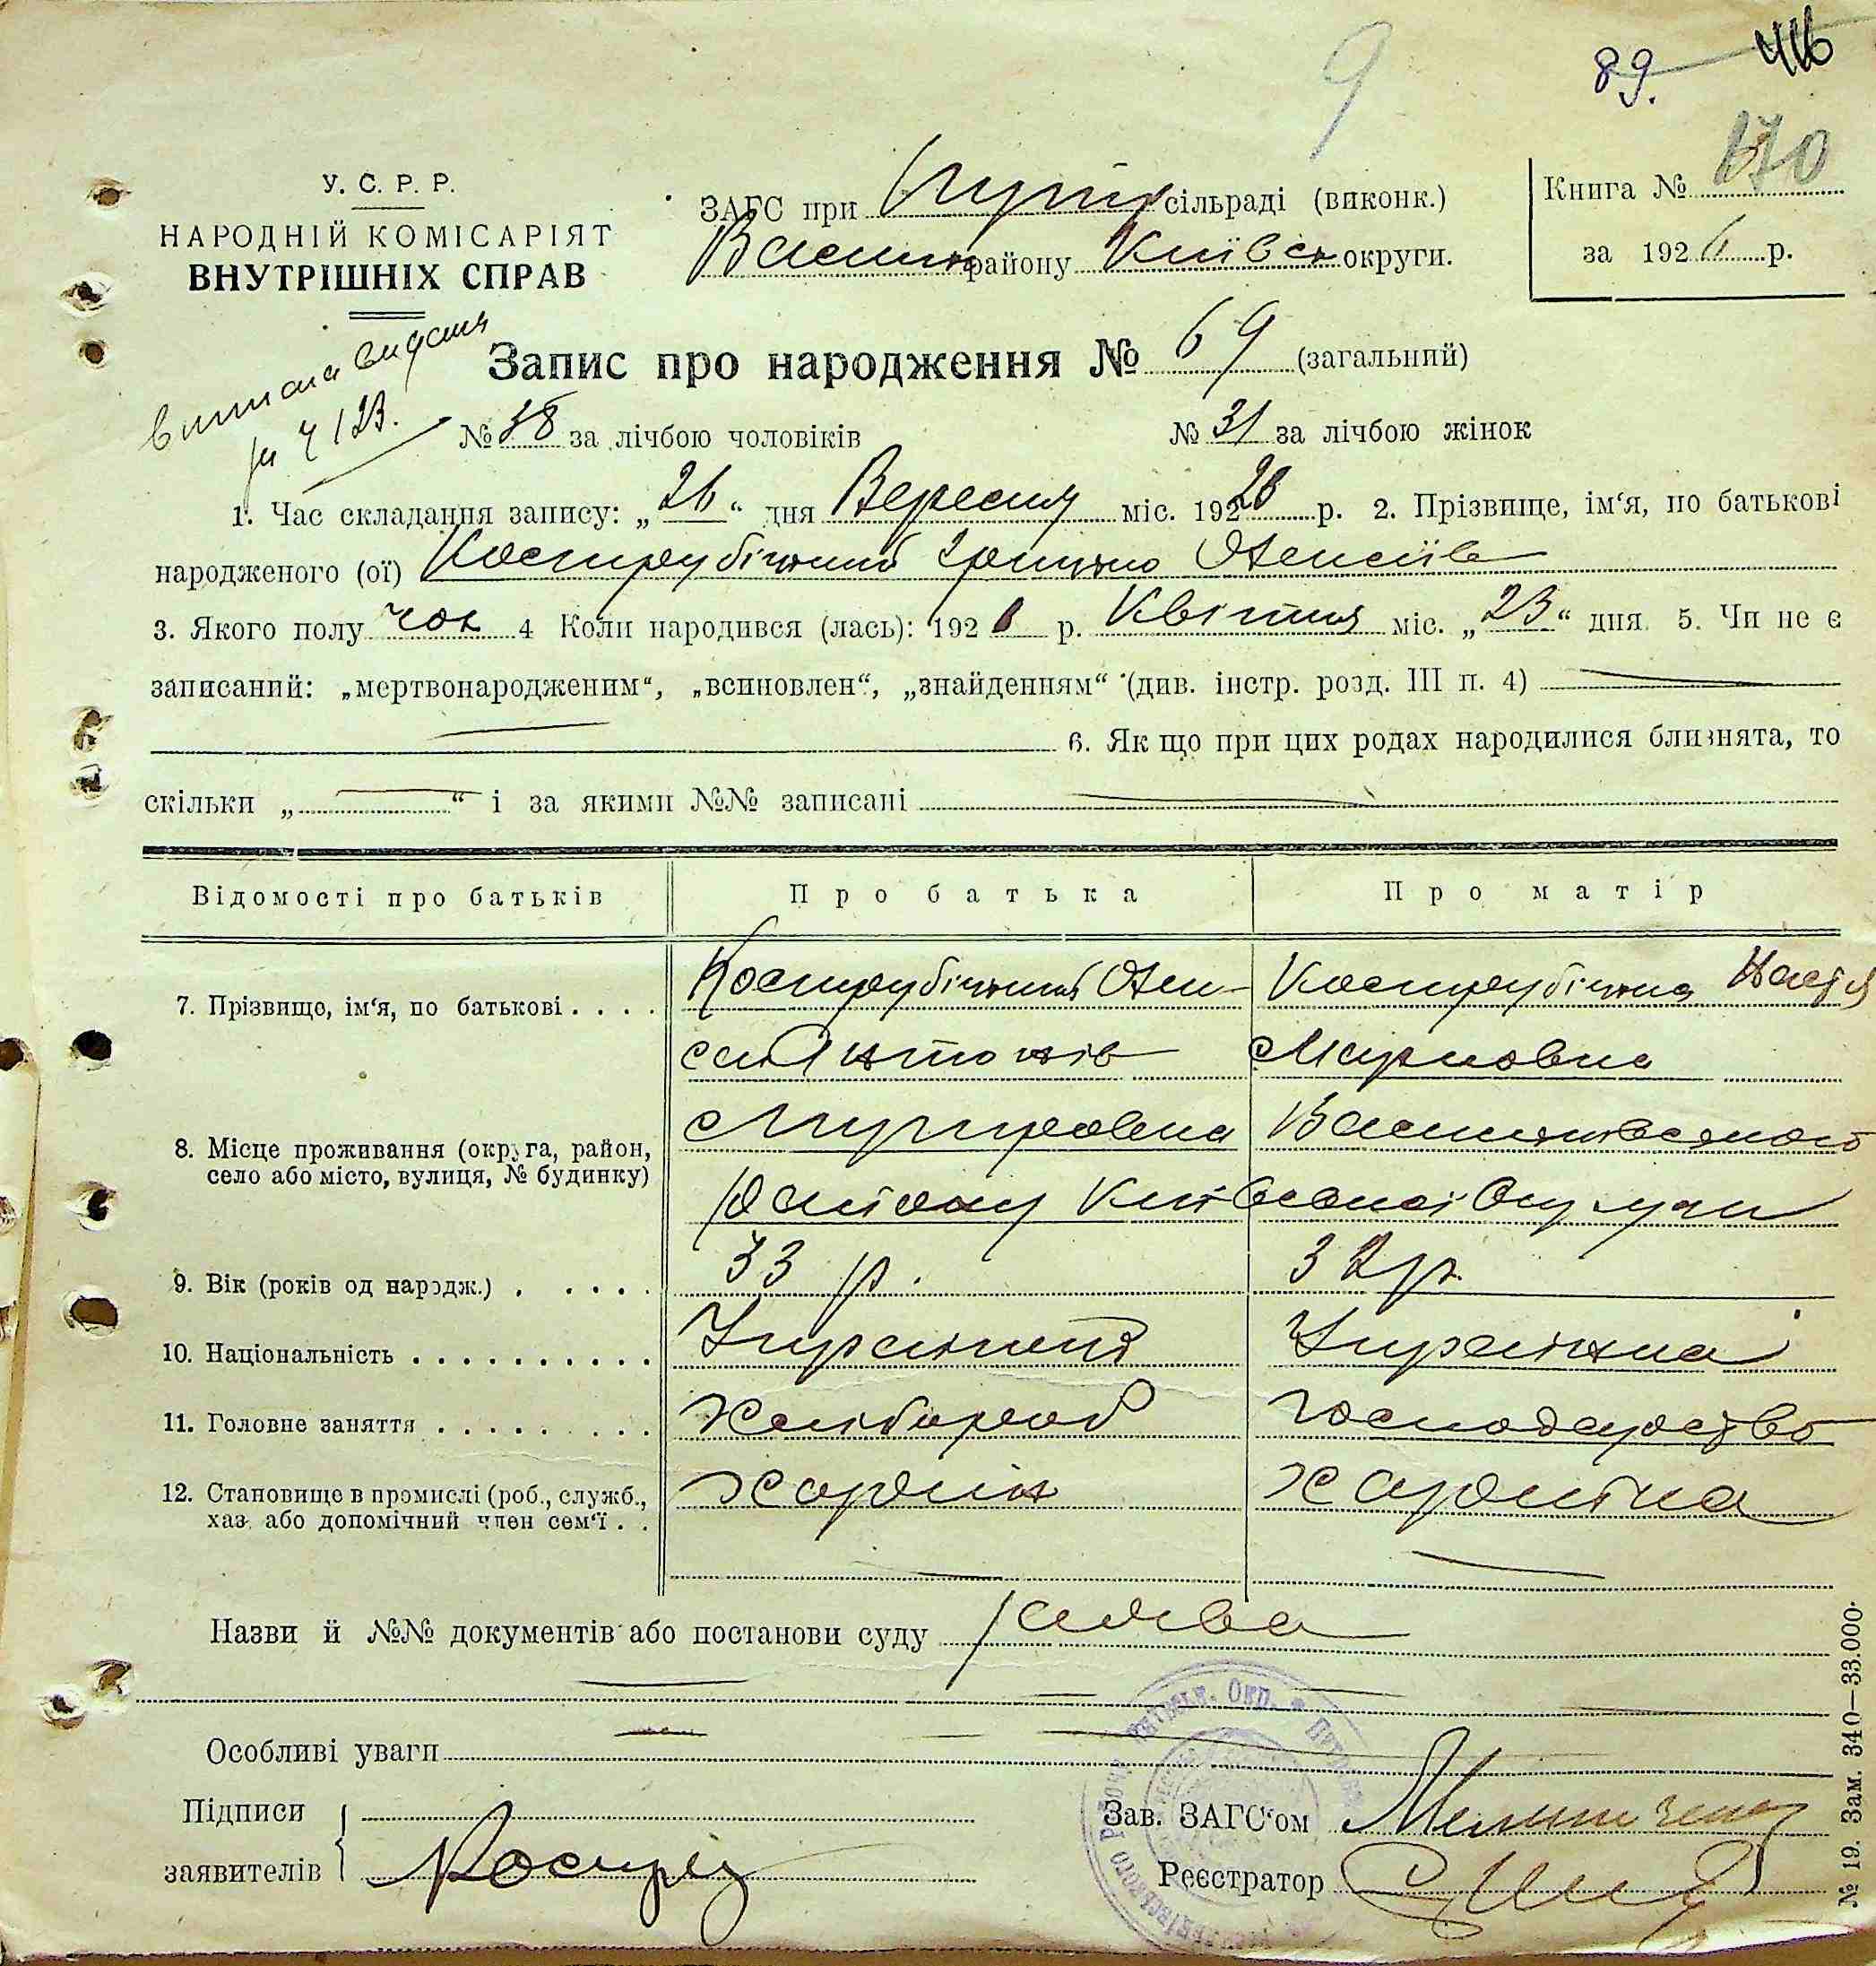 9
89.
470
У. С. Р. Р.
НАРОДНІЙ КОМІСАРІЯТ
ВНУТРІШНІХ СПРАВ
ЗАГС при сільраді (виконк.)
Васильк району Київськ округи.
Книга №
за 1926 р.
Запис про народження № 69 (загальний)
№ 38 за лічбою чоловіків № 31 за лічбою жінок
1. Час складання запису: „26“ дня Вересня міс. 192 р. 2. Прізвище, ім‘я, по батькові
народженого (ої) Кострубіцький Грицько Олексіїв
3. Якого полу чол 4 Коли народився (лась): 192 р. Квітня міс. „23“ дня. 5. Чи не є
записаний: „мертвонародженим“, „всиновлен“, „знайденням“ (див. інстр. розд. III п. 4)
6. Як що при цих родах народилися близнята, то
скільки „ “ і за якими №№ записані
Відомості про батьків Про батька Про матір
7. Прізвище, ім‘я, по батькові . . . . Кострубіцький Олек- Кострубіцька Настя
сій Антонів Марковна
8. Місце проживання (округа, район, Васильківського
село або місто, вулиця, № будинку) району Київської Округи
9. Вік (років од народж.) . . . . . 33 р. 32 р.
10. Національність . . . . . . . . . . Українець Українка
11. Головне заняття . . . . . . . . . Хлібороб господарство
12. Становище в промислі (роб., служб., хазяїн хазяйка
хаз. або допомічний член сем‘ї . .
Назви й №№ документів або постанови суду заява
Особливі уваги
Підписи
заявителів Костру
Зав. ЗАГС‘ом
Реєстратор
№ 19. Зам. 340—33.000.